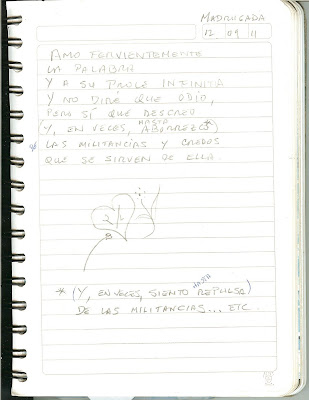 MADRUGADA
12 09 11
AMO FERVIENTEMENTE
LA PALABRA
Y A SU PROLE INFINITA
Y NO DIRÉ QUE ODIO,
PERO SÍ QUE DESCREO
(Y, EN VECES, HASTA ABORREZCO*)
LAS MILITANCIAS Y CREDOS
QUE SE SIRVEN DE ELLA.
* (Y, EN VECES, SIENTO HASTA REPULSA)
DE LAS MILITANCIAS... ETC.